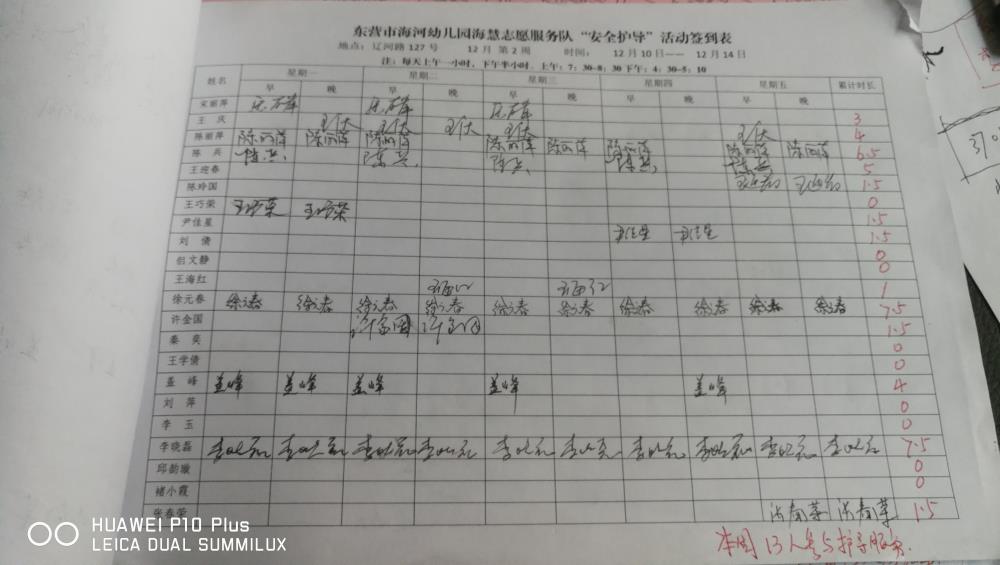 东营市海河幼儿园海慧志愿服务队“安全护导”活动签到表
地点：辽河路127号 12月 第2周 时间： 12月10日—— 12月14日
注：每天上午一小时，下午半小时，上午：7：30-8：30 下午：4：30-5：10
姓名 星期一 星期二 星期三 星期四 星期五 累计时长
早 晚 早 晚 早 晚 早 晚 早 晚
宋丽萍 3
王庆 4
陈丽萍 陈丽萍 陈丽萍 陈丽萍 陈丽萍 陈丽萍 陈丽萍 陈丽萍 陈丽萍 6.5
陈兵 陈兵 陈兵 陈兵 陈兵 陈兵 5
王迎春 王迎春 王迎春 1.5
陈玲国 0
王巧荣 王巧荣 王巧荣 1.5
尹佳星 尹佳星 尹佳星 1.5
刘倩 0
文静 0
王海红 王海红 王海红 1
徐元春 徐元春 徐元春 徐元春 徐元春 徐元春 徐元春 徐元春 徐元春 徐元春 徐元春 7.5
许金国 许金国 许金国 1.5
秦奕 0
王学倩 0
盖峰 盖峰 盖峰 盖峰 盖峰 盖峰 4
刘萍 0
李玉 0
李晓磊 7.5
邱韵璇 0
褚小霞 0
张春荣 张春荣 张春荣 1.5
本周13人参与护导服务.
HUAWEI P10 Plus
LEICA DUAL SUMMILUX